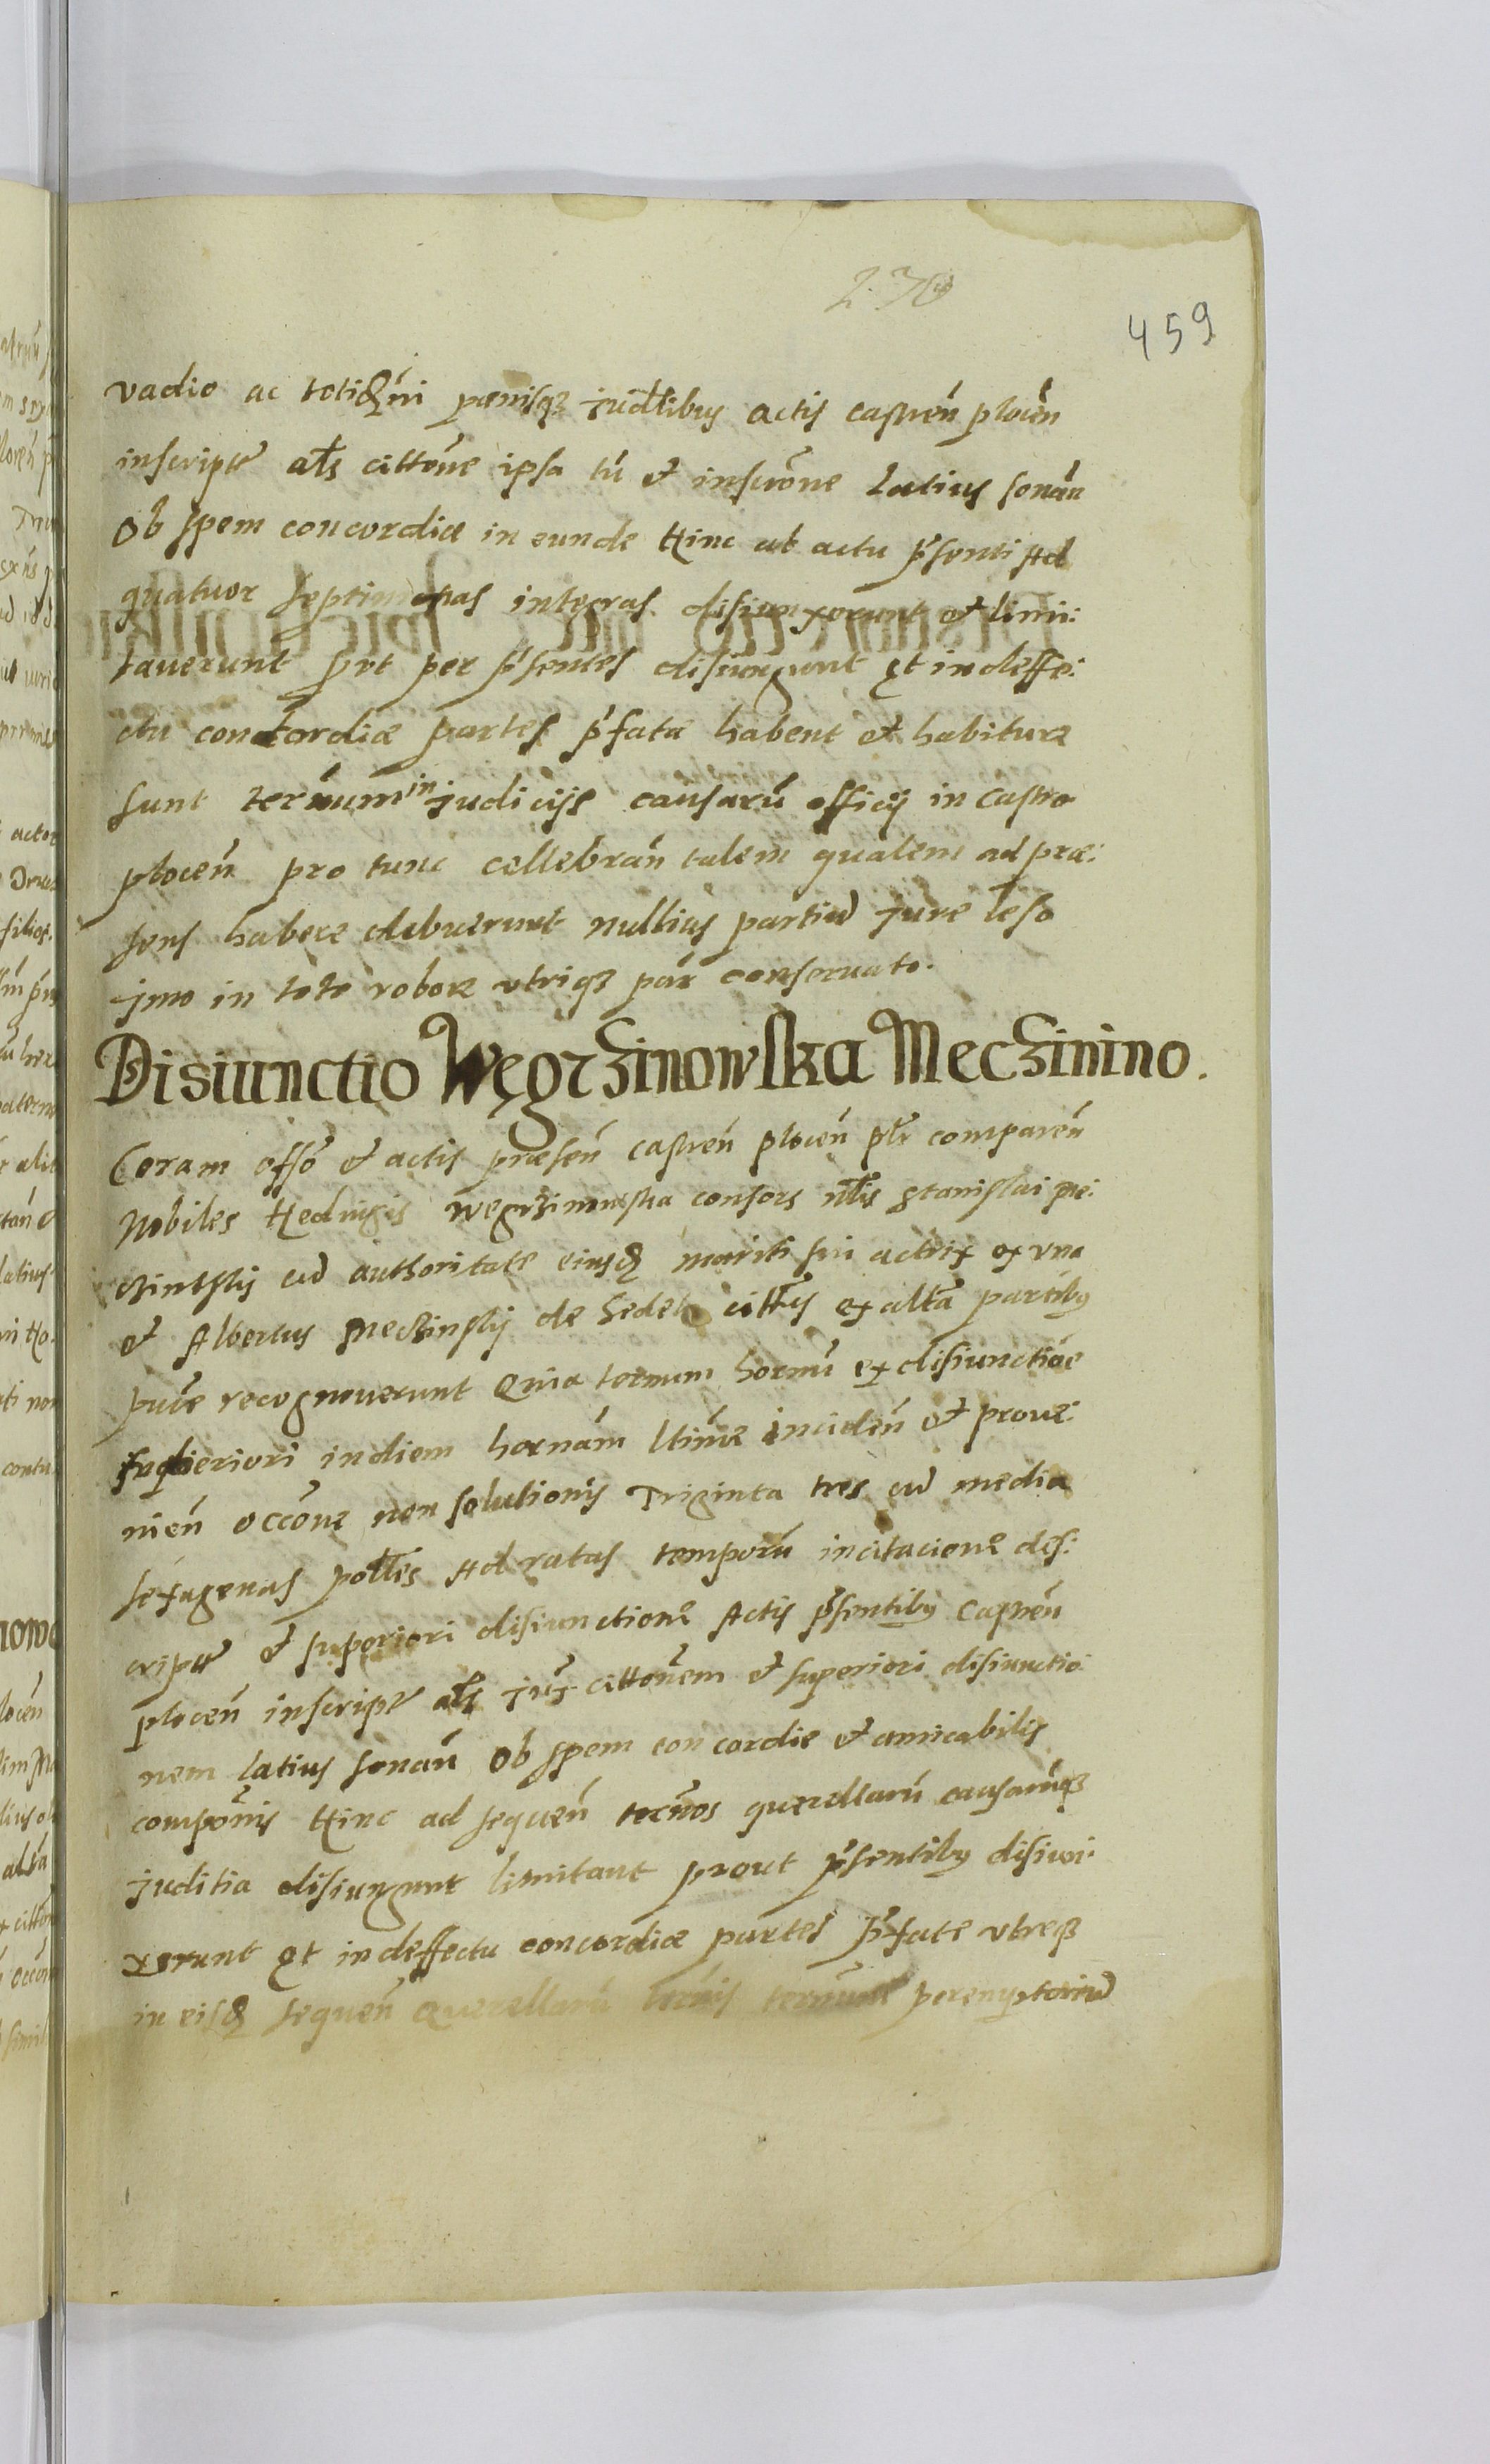 270
459
vadio ac totidẽni pœnisqȝ judlibus actis castren̄ plocen̄
inscriptæ als cittone ipsa tū et inscrõne latius sonan̄
Ob spem concordiæ in eunde Hinc ab actu pr̃senti Ad
quatuor septimanas integras disiunxerunt et limi:
tauerunt prt per pr̃sentes disiungunt Et in deffe:
ctu concordiæ partes pr̃fatæ habent et habituræ
sunt termūm in judicijs causarū officij in Castro
plocen̄ pro tunc cellebran̄ talem qualem ad præ:
sens habere debuerunt nullius partiū jure leso
jmo in toto robore vtriqȝ par conseruato.
Disiunctio Węgrzinowska Meczinino.
Coram offo et actis præsen̄ castren̄ plocen̄ plr comparen̄
Nobiles Hedvigis Wegrzinowska consors nlis Stanislai Me:
czinskij cū authoritate eiusd mariti sui actrix ex vna
et Albertus Meczinskij de ibidem cittus ex altā partibus
pure recognouerunt Quia termum hornū ex disiunctiõe
superiori in diem hornam ltime inciden̄ et proue:
nien̄ occõne non solutionis Triginta tres cū media
sexagenas pollis Ad ratas temporū in citacione des:
criptæ et superiori disiunctione Actis pr̃sentibus Castren̄
plocen̄ inscriptæ als juxt cittonem et superiori disiunctio:
nem latius sonan̄ Ob spem concordie et amicabilis
compõnis Hinc ad sequen̄ termos querellarū causarūqȝ
juditia disiungunt limitant prout pr̃sentibus disiun:
xerunt Et in deffectu concordiæ partes pr̃fate vtreqȝ
in eisd sequen̄ Querellarū termis termūm peremptoriū